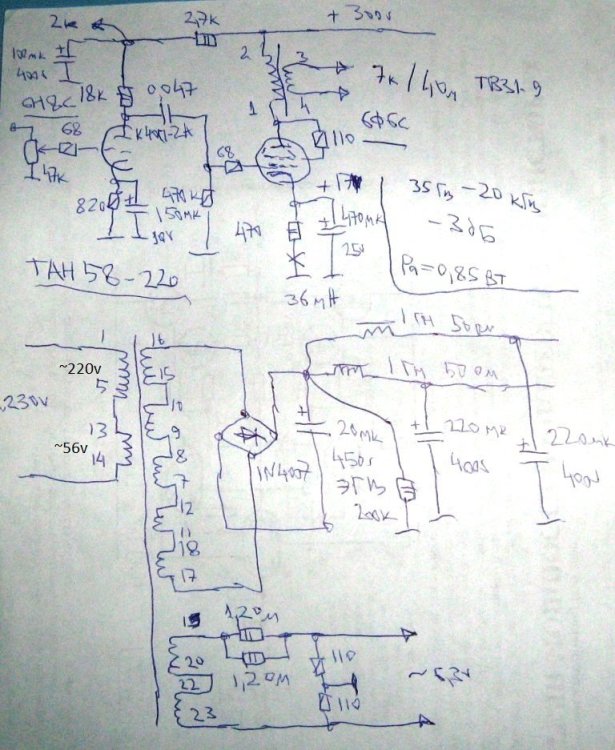 2k
2,7k
+ 300v
100мк
400v
2
3
7к / 4Ом ТВЗ1-9
18k
0,047
1
4
6Н8С
110
6Ф6С
68
47k
68
820
470k
150мк
+17v
470
470мк
25v
35Гц - 20 кГц
- 3дБ
Pa = 0,85 Вт
ТАН 58-220
36mA
1 ГН 50Ом
1
16
~220v
5
15
1 ГН 50Ом
230v
10
13
9
~56v
14
8
7
12
11
18
17
1N4007
20мк
450v
200k
220мк
400v
220мк
400v
1,2Ом
20
22
23
1,2Ом
110
110
~6,3v